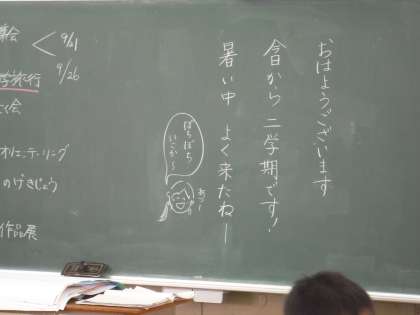 おはようございます
今日から二学期です!
暑い中 よく来たねー
ぼちぼち
いこか〜
あつー
会
9/1
9/26
学旅行
会
オリエンテーリング
のげきじょう
作品展